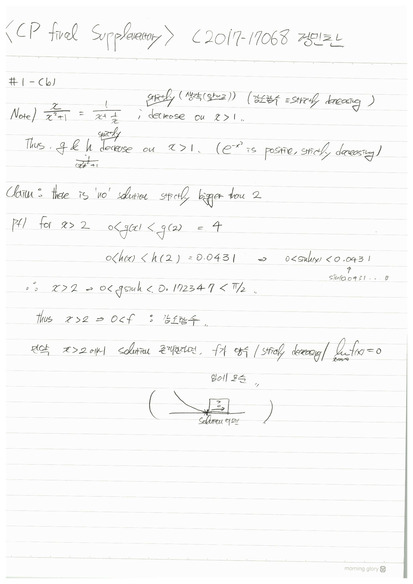 <CP final Supplementary> (2017-17068
#1-(b)
Note) x/(x³+1) = 1/(x²+1/x) ; decrease on x>1. strictly (감소함수 = strictly decreasing)
Thus. g & h strictly decrease on x>1. (e^-x is positive, strictly decreasing)
Claim : there is 'no' solution strictly bigger than 2
pf) for x>2 0<g(x)<g(2) = 4
0<h(x)<h(2) = 0.0431 ⇒ 0<sinh(x)<0.0431
∴ x>2 ⇒ 0<g sinh<0.172347<π/2.
thus x>2 ⇒ 0<f : 감소함수.
만약 x>2에서 solution 존재한다면, f가 양수/strictly decreasing/ lim f(x)=0
임에 모순
solution
morning glory